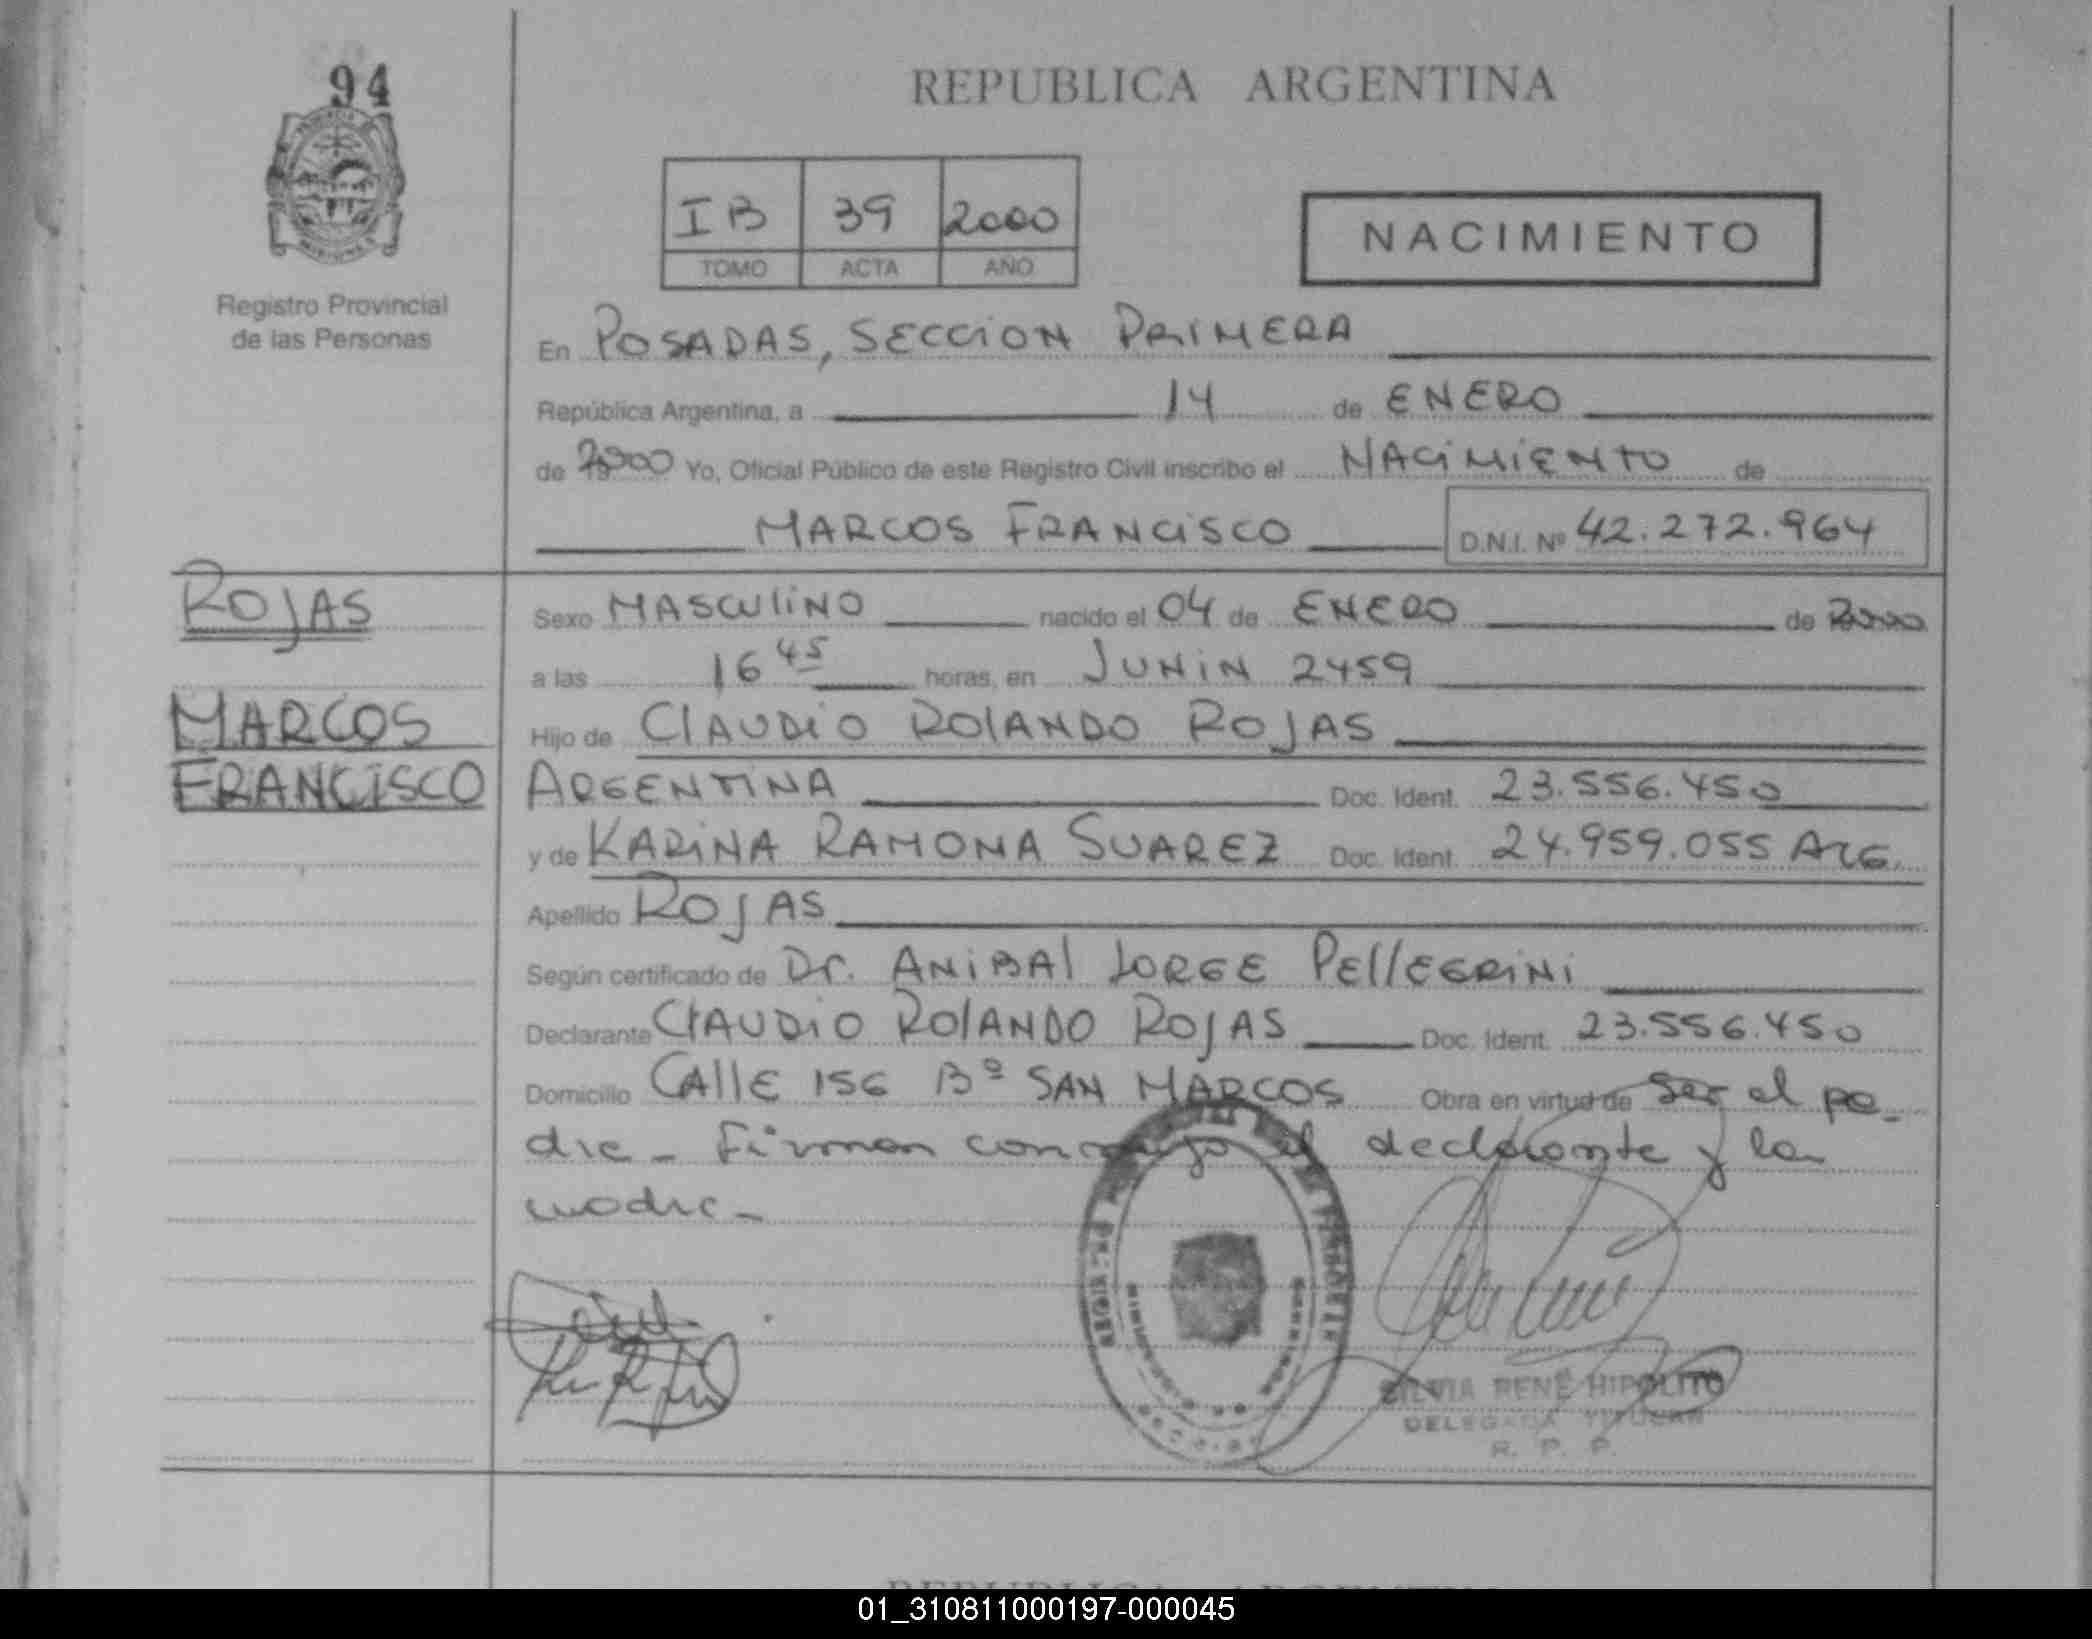 94
REPUBLICA ARGENTINA
IB 39 2000
TOMO ACTA AÑO
NACIMIENTO
Registro Provincial
de las Personas
En POSADAS, SECCION PRIMERA
República Argentina, a 14 de ENERO
de 2000 Yo, Oficial Público de este Registro Civil inscribo el NACIMIENTO de
MARCOS FRANCISCO D.N.I. Nº 42.272.964
ROJAS
MARCOS
FRANCISCO
Sexo MASCULINO nacido el 04 de ENERO de 2000
a las 16 45 horas, en JUNIN 2459
Hijo de CLAUDIO ROLANDO ROJAS
ARGENTINA Doc. Ident. 23.556.450
y de KARINA RAMONA SUAREZ Doc. Ident. 24.959.055 ARG.
Apellido ROJAS
Según certificado de Dr. ANIBAL JORGE PELLEGRINI
Declarante CLAUDIO ROLANDO ROJAS Doc. Ident. 23.556.450
Domicilio CALLE 156 Bº SAN MARCOS Obra en virtud de ser el pa-
dre - Firman conmigo el declarante y la
madre -
SILVIA RENÉ HIPOLITO
DELEGADA
R. P. P.
01_310811000197-000045